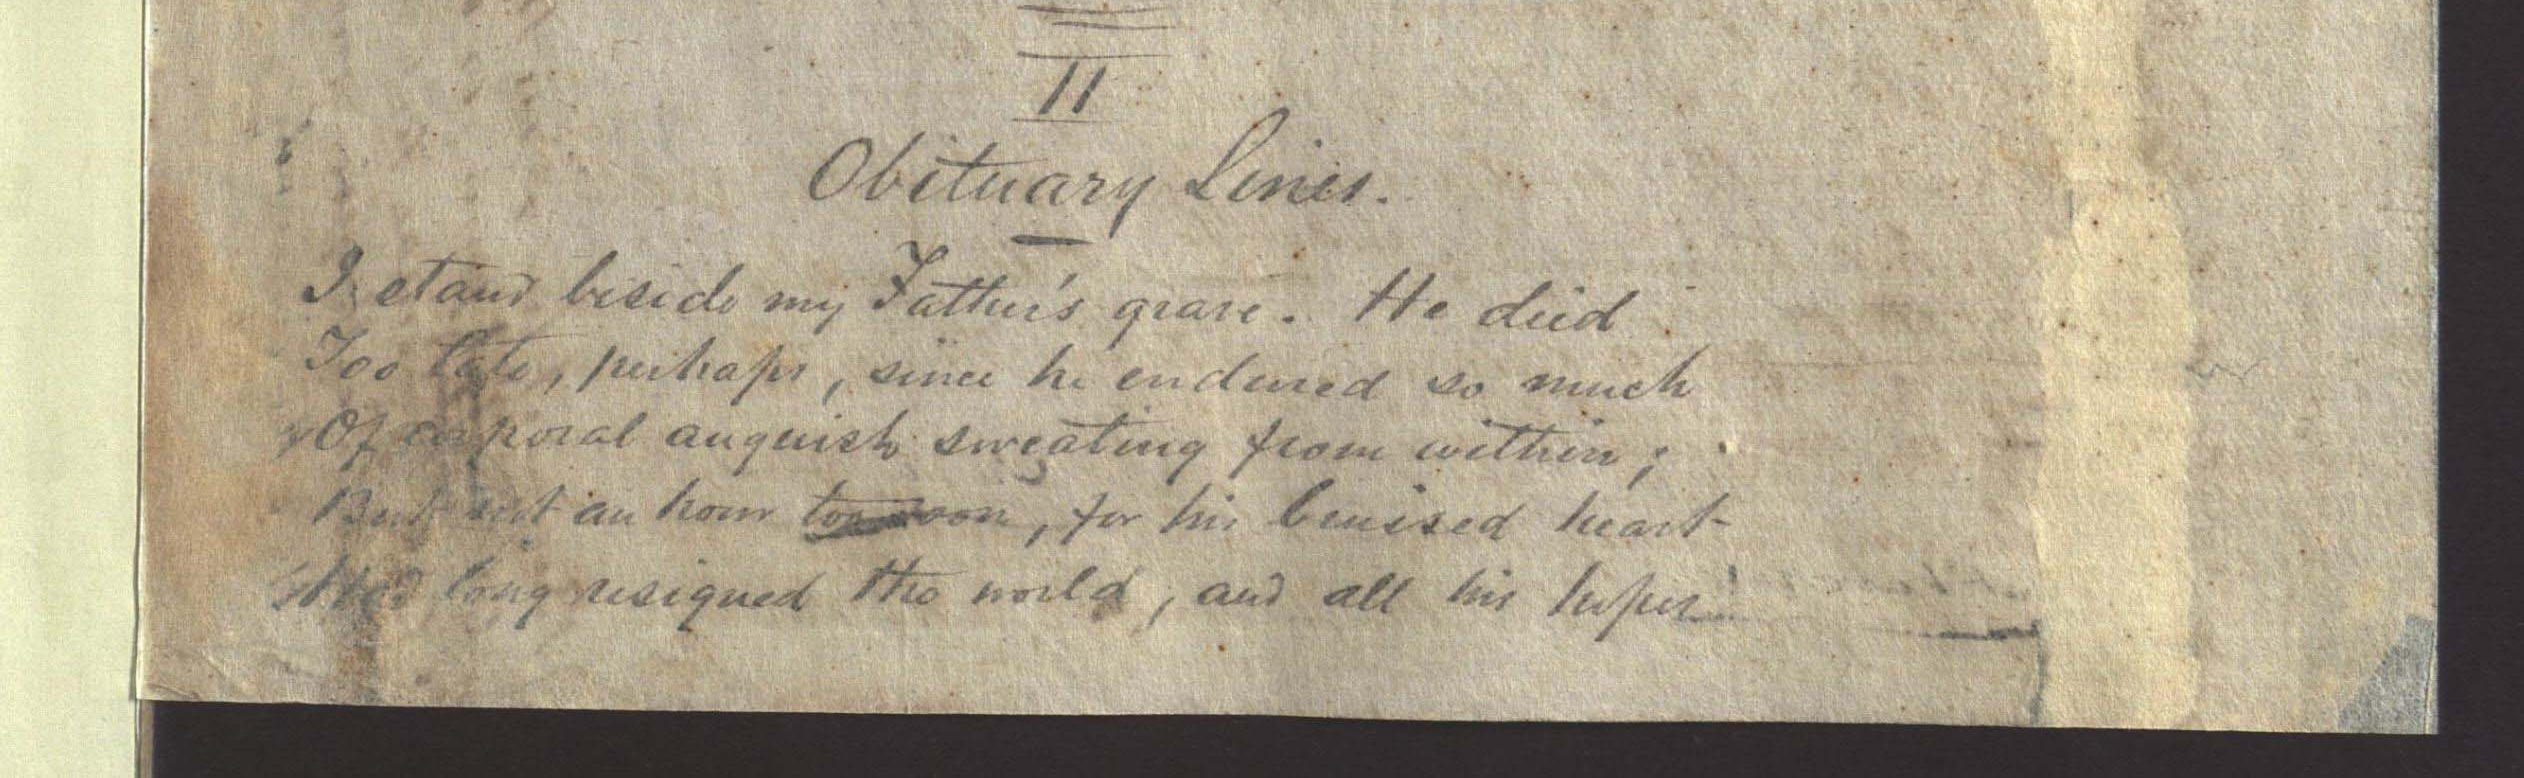 11
Obituary Lines.
I stand beside my Father's grave. He died
Too late, perhaps, since he endured so much
Of corporal anguish sweating from within;
But not an hour too soon, for his bruised heart
Had long resigned the world, and all his hopes